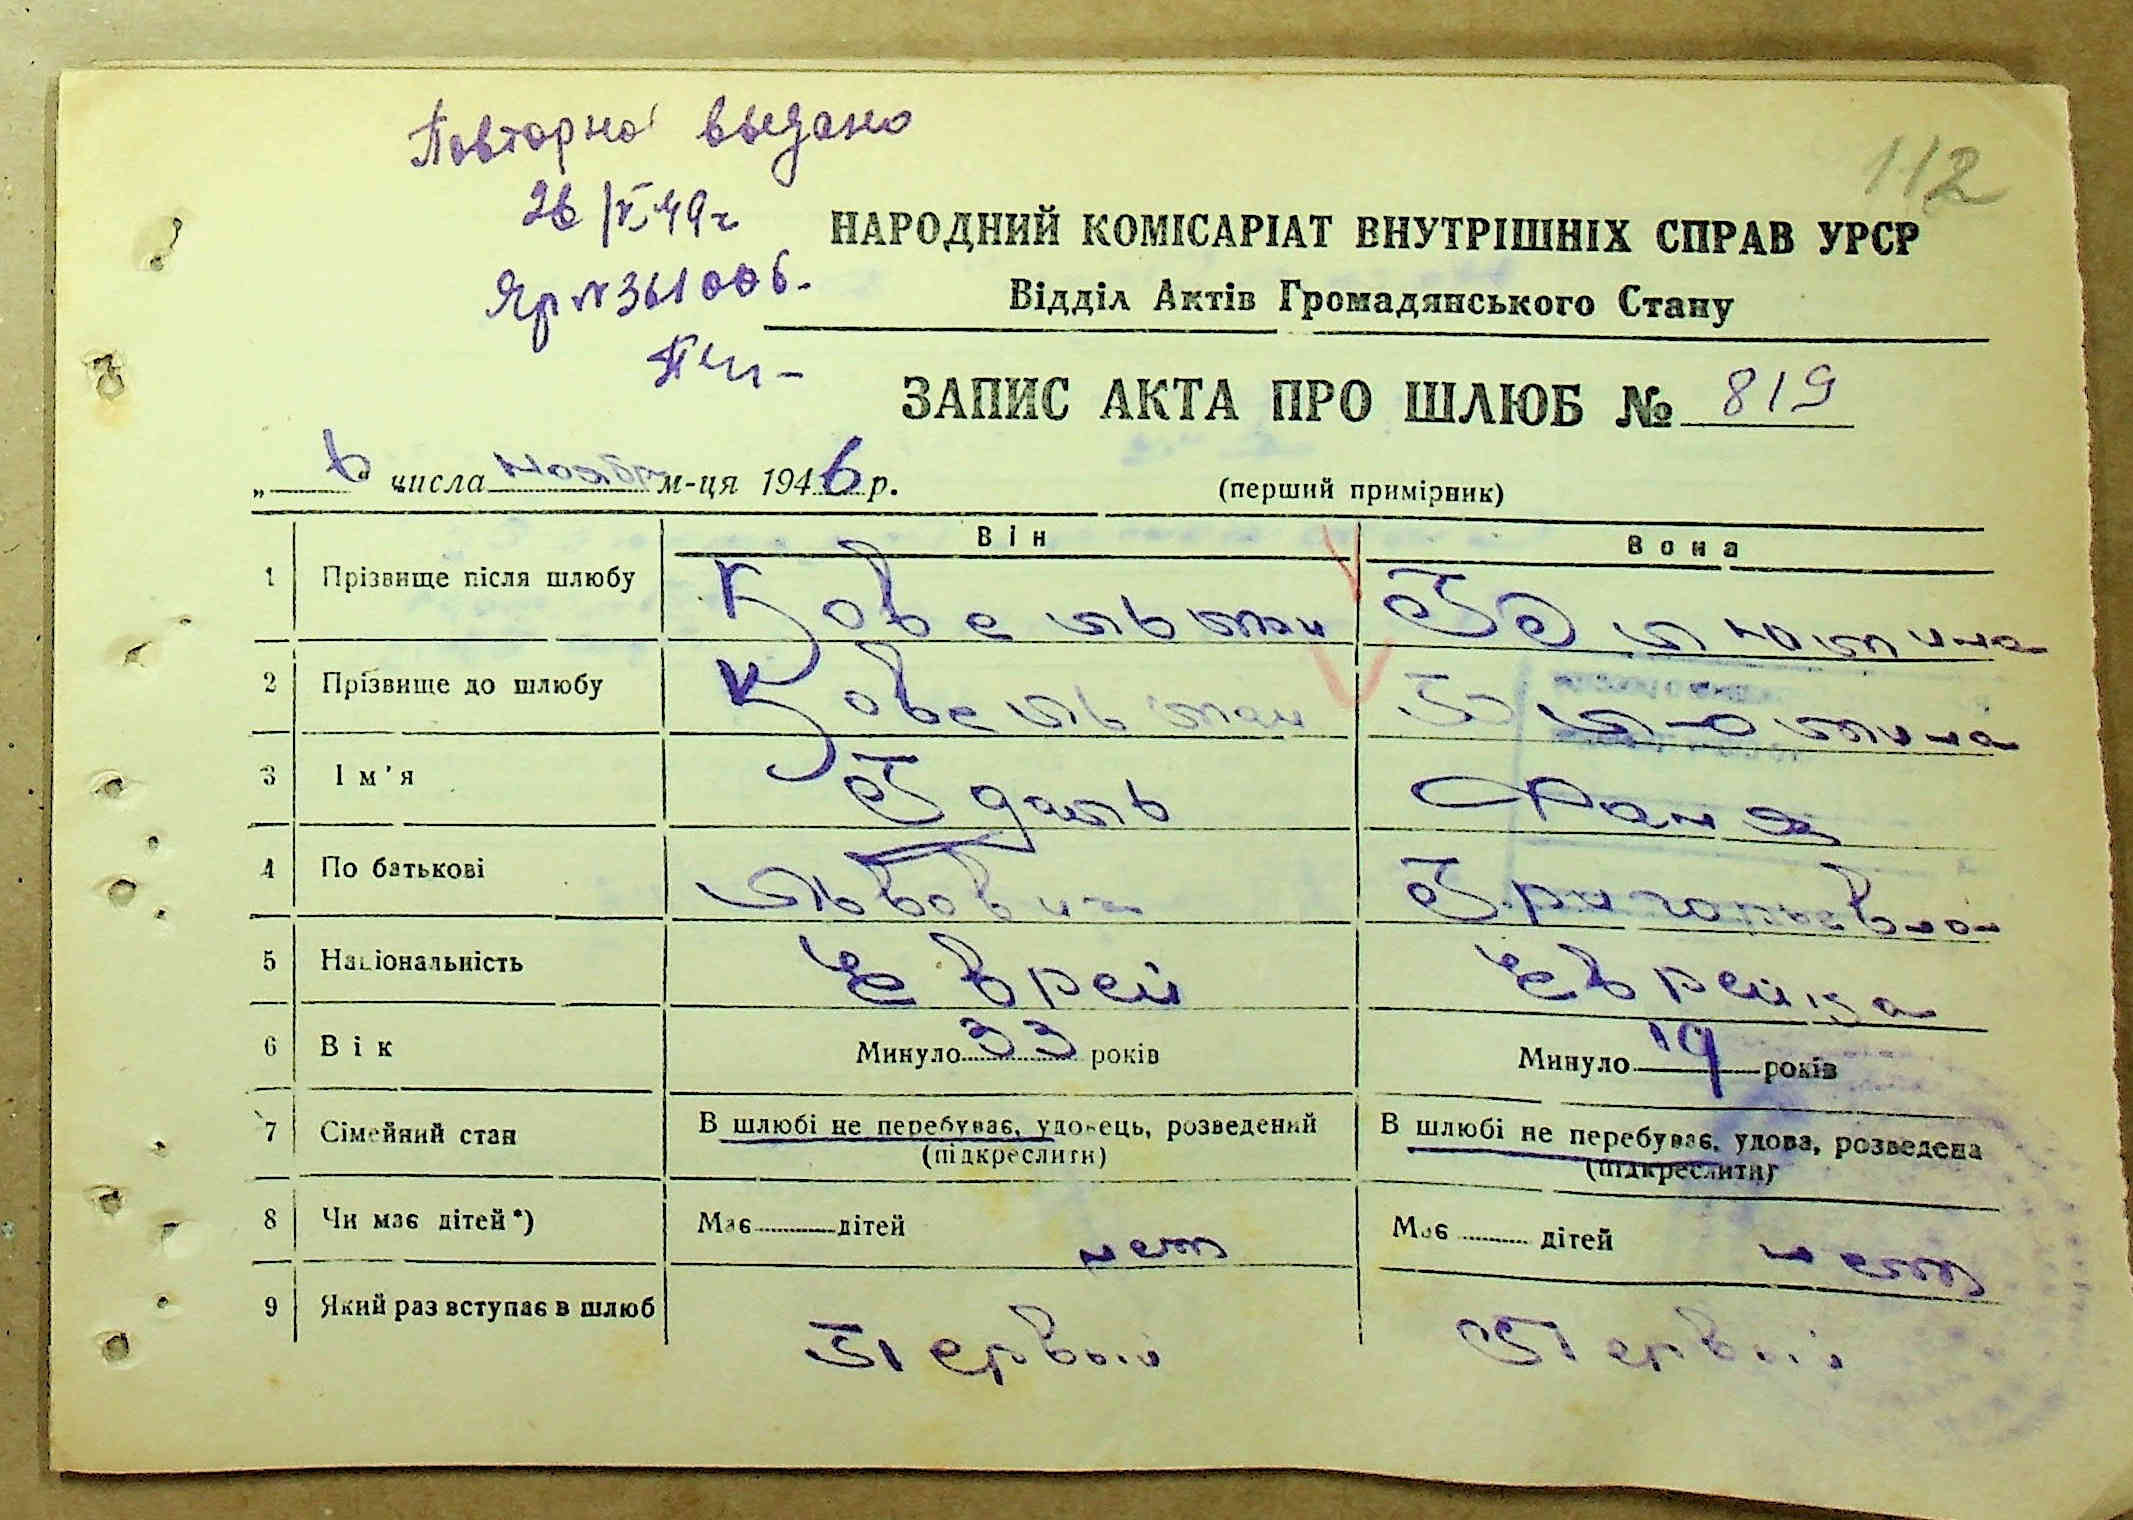 Повторно выдано
112
26/V-49 г
Яр № 361006.
НАРОДНИЙ КОМІСАРІАТ ВНУТРІШНІХ СПРАВ УРСР
Відділ Актів Громадянського Стану
ЗАПИС АКТА ПРО ШЛЮБ № 819
„6“ числа ноябр м-ця 1946 р.
(перший примірник)
Він Вона
1 Прізвище після шлюбу Ковельман
2 Прізвище до шлюбу Ковельман
3 Ім'я Гдаль Фаня
4 По батькові Львович Григорьевна
5 Національність Еврей Еврейка
6 Вік Минуло 33 років Минуло 19 років
7 Сімейний стан В шлюбі не перебуває, удовець, розведений В шлюбі не перебуває, удова, розведена
(підкреслити) (підкреслити)
8 Чи має дітей*) Має дітей нет Має дітей нет
9 Який раз вступає в шлюб Первый Первый